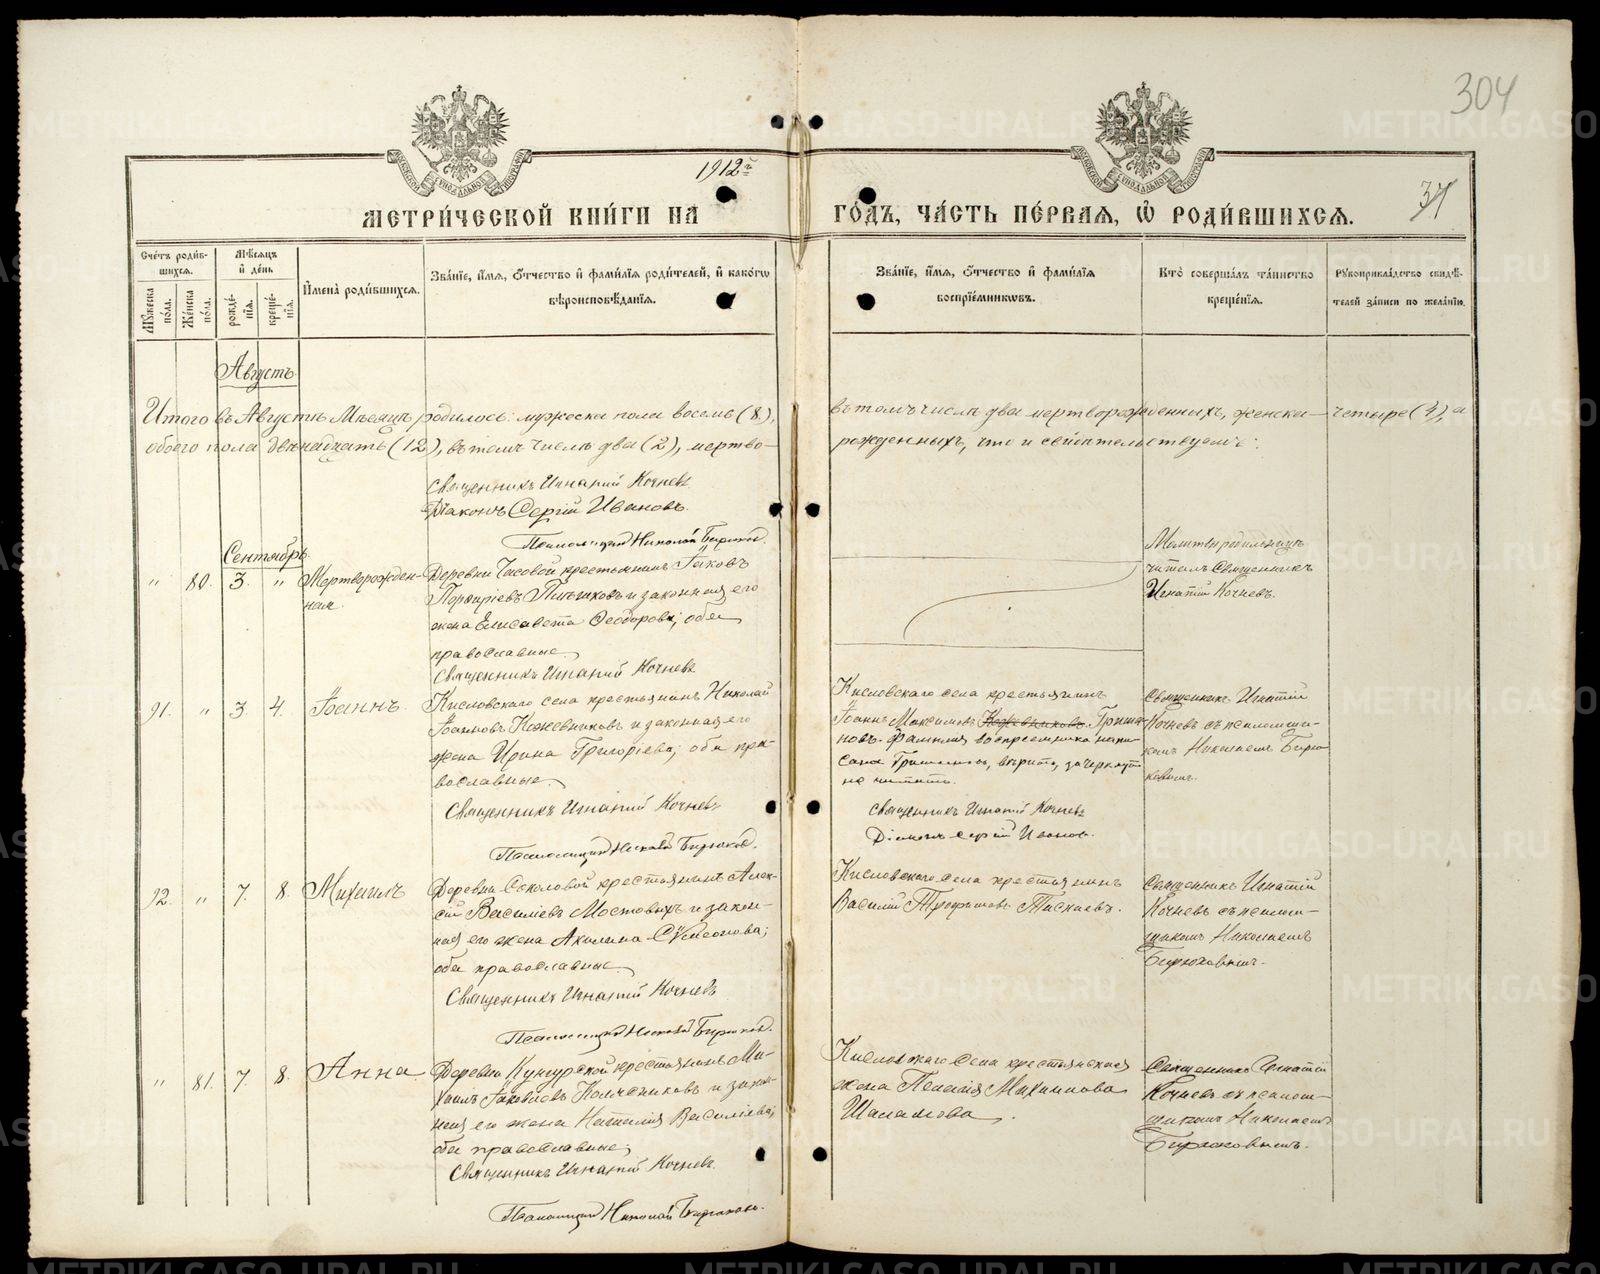 304
1912й
37
МЕТРИ́ЧЕСКОЙ КНИ́ГИ НА
ГО́ДЪ, ЧА́СТЬ ПЕ́РВАЯ, Ѡ҆ РОДИ́ВШИХСЯ.
Сче́тъ роди́в-
шихся.
Мѣ́сяцъ
и҆ де́нь
Мꙋ́жеска
по́ла.
Же́нска
по́ла.
рожде́-
нїѧ.
креще́-
нїѧ.
И҆мена̀ роди́вшихсѧ.
Зва́нїе, и҆́мѧ, ѻ҆́тчество и҆ фами́лїѧ роди́телей, и҆ како́гѡ
вѣроисповѣ́данїѧ.
Зва́нїе, и҆́мѧ, ѻ҆́тчество и҆ фами́лїѧ
воспрїе́мникѡвъ.
Кто̀ соверша́лъ та́инство
креще́нїѧ.
Рꙋкоприкла́дство свидѣ́-
телей за́писи по жела́нїю.
Августъ
Итого въ Августѣ Мѣсяцѣ родилось: мужеска пола восемь (8), въ томъ числѣ два мертворожденныхъ, женска - четыре (4), а
обоего пола двѣнадцать (12), въ томъ числѣ два (2), мертво- рожденныхъ, что и свидѣтельствуемъ:
Священникъ Игнатій Кочневъ
Діаконъ Сергій Ивановъ.
Псаломщикъ Николай Бирюковъ.
Сентябрь.
" 80. 3. " Мертворожден-
ная.
Деревни Часовой крестьянинъ Іаковъ
Порфиріевъ и законная его
жена Елисавета Ѳеодорова; оба
православные.
Священникъ Игнатій Кочневъ
Молитву родильницѣ
читалъ Священникъ
Игнатій Кочневъ.
91. " 3. 4. Іоаннъ.
Кисловскаго села крестьянинъ Николай
Іоанновъ Кожевниковъ и законная его
жена Ирина Григоріева; оба пра-
вославные.
Священникъ Игнатій Кочневъ
Псаломщикъ Николай Бирюковъ.
Кисловскаго села крестьянинъ
Іоаннъ Максимовъ Кожевниковъ. Гриша-
новъ. Фамилія воспріемника напи-
сана Гришановъ, вѣрить, зачеркнутое
не читать.
Священникъ Игнатій Кочневъ
Діаконъ Сергій Ивановъ.
Священникъ Игнатій
Кочневъ съ псаломщи-
комъ Николаемъ Бирю-
ковымъ.
92. " 7. 8. Михаилъ
Деревни Соколовой крестьянинъ Алек-
сій Василіевъ Мостовыхъ и закон-
ная его жена Акилина Сѵмеонова;
оба православные.
Священникъ Игнатій Кочневъ
Псаломщикъ Николай Бирюковъ.
Кисловскаго села крестьянинъ
Василій Трофимовъ
Священникъ Игнатій
Кочневъ съ псалом-
щикомъ Николаемъ
Бирюковымъ.
" 81. 7. 8. Анна
Деревни Кунгурской крестьянинъ Ми-
хаилъ Іаковлевъ и закон-
ная его жена Наталія Василіева;
оба православные;
Священникъ Игнатій Кочневъ.
Псаломщикъ Николай Бирюковъ.
Кисловскаго села крестьянская
жена Пелагія Михаилова
Шаламова.
Священникъ Игнатій
Кочневъ съ псалом-
щикомъ Николаемъ
Бирюковымъ.
METRIKI.GASO-URAL.RU